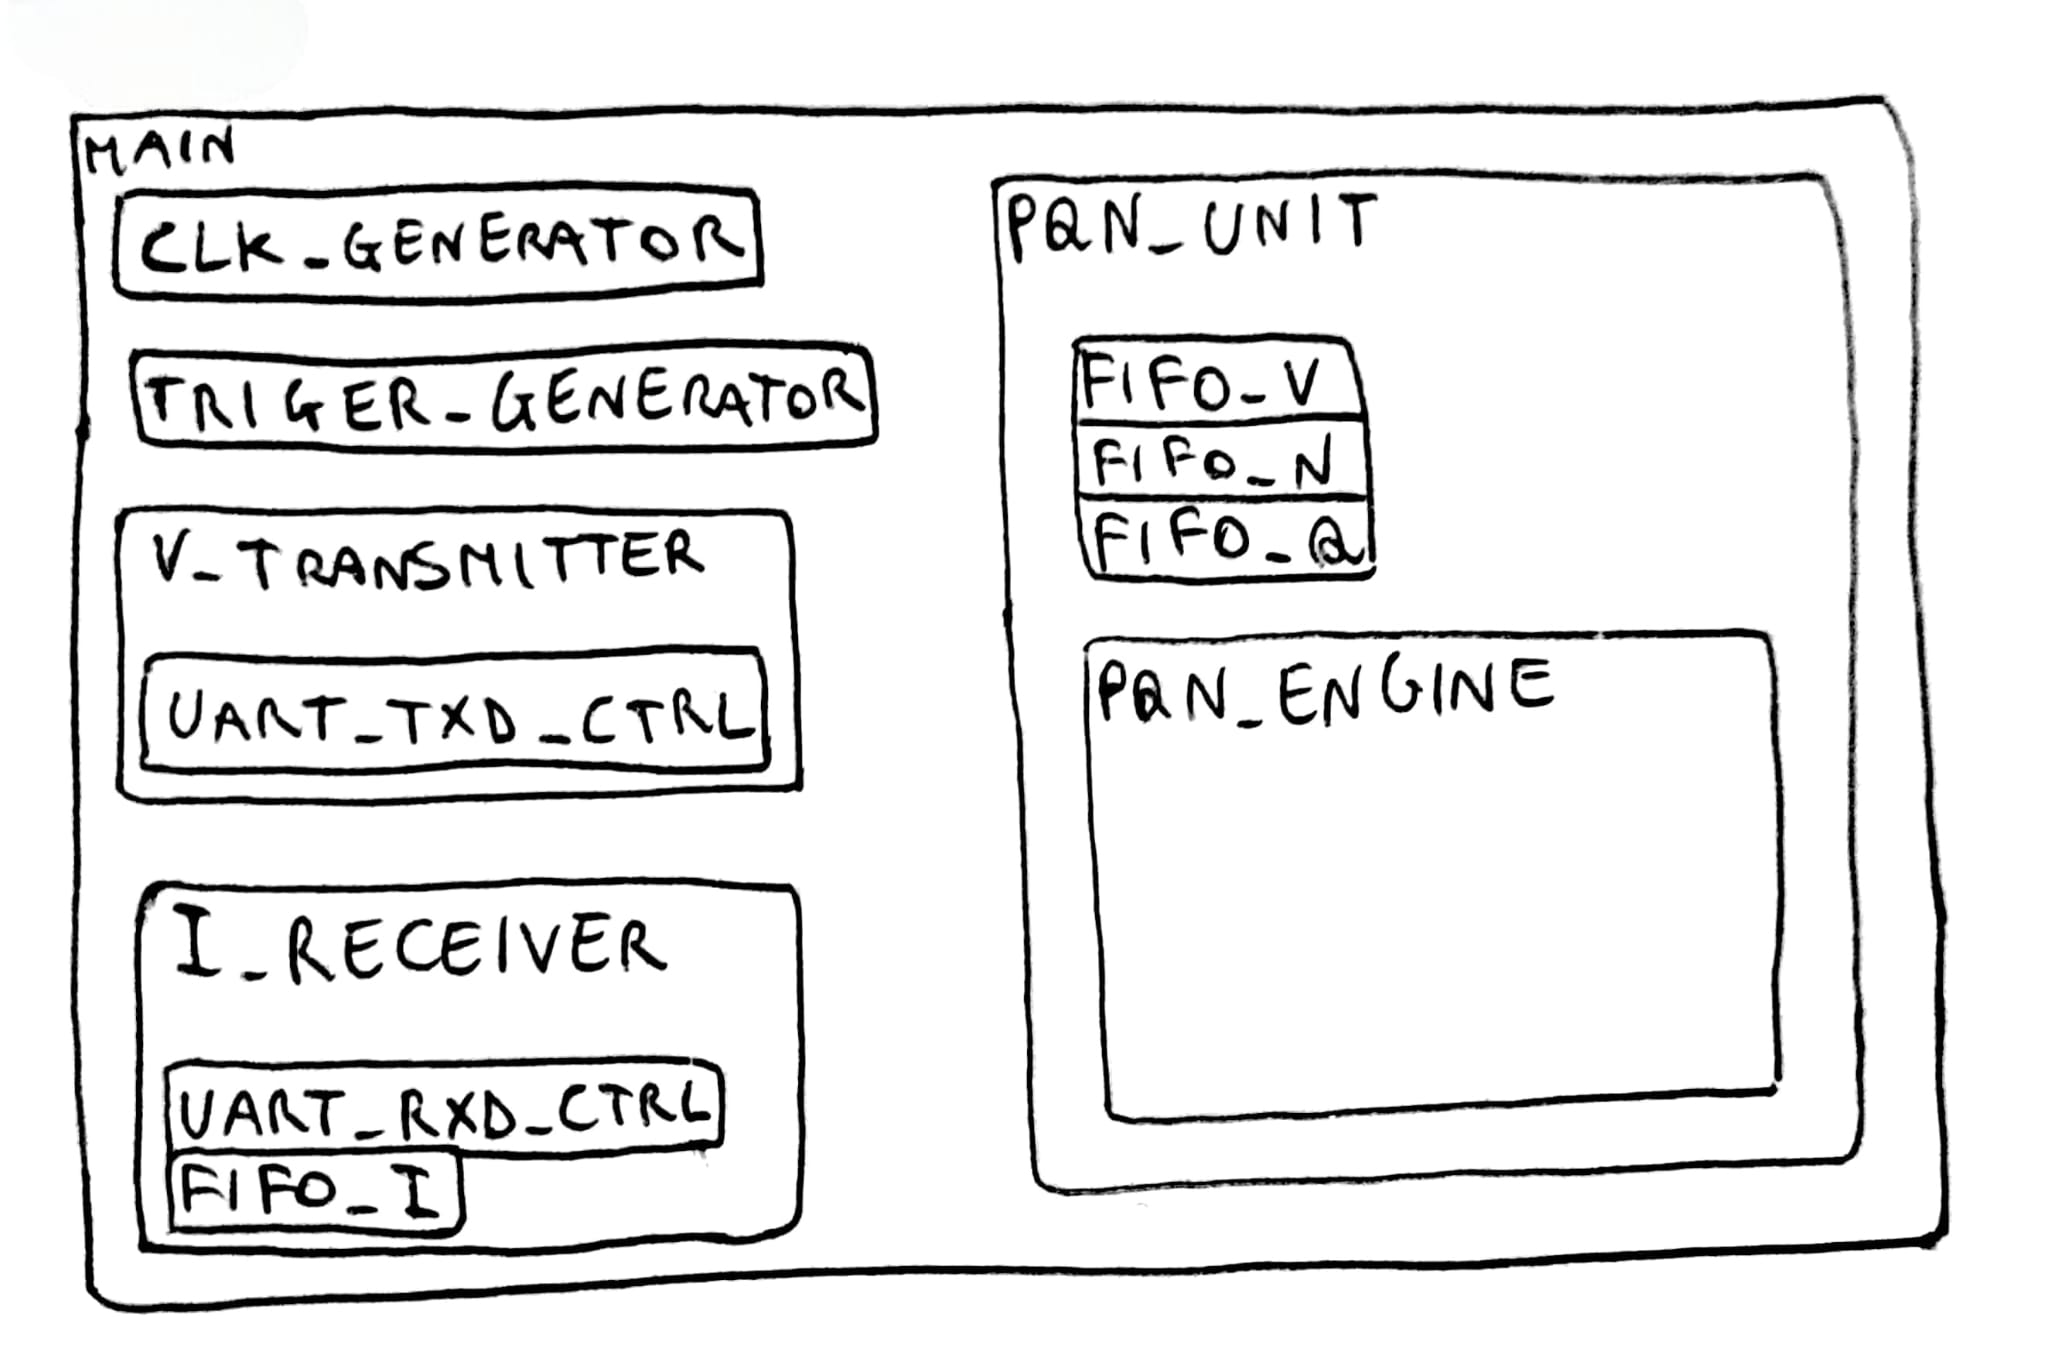 MAIN
CLK_GENERATOR
TRIGER_GENERATOR
V_TRANSMITTER
UART_TXD_CTRL
I_RECEIVER
UART_RXD_CTRL
FIFO_I
PQN_UNIT
FIFO_V
FIFO_N
FIFO_Q
PQN_ENGINE